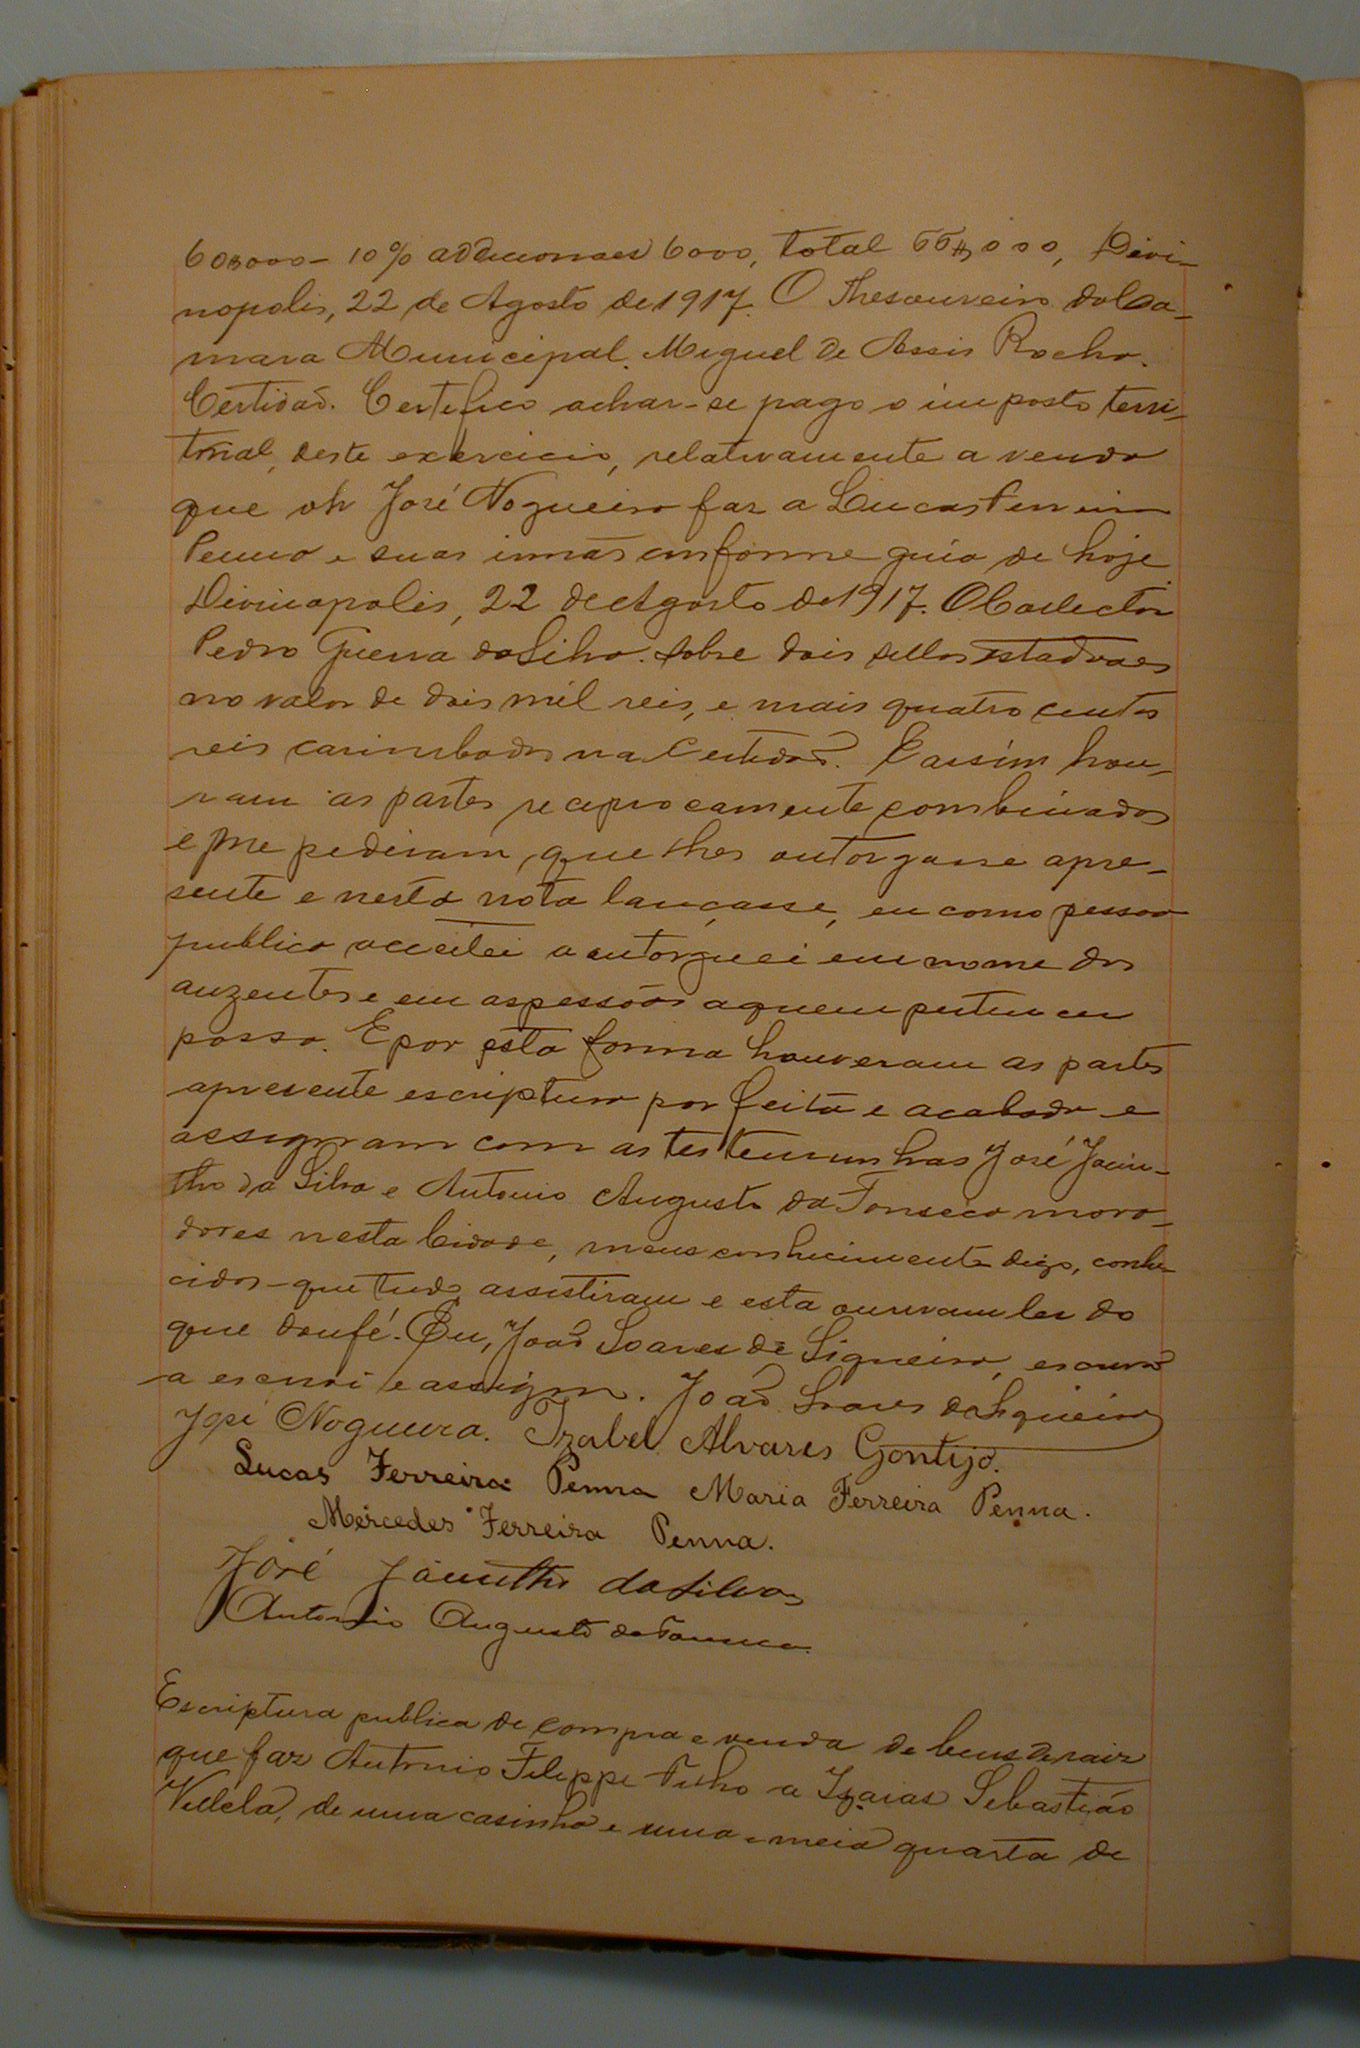 60$000 - 10% addicionaes 6000, total 66$000, Divi-
nopolis, 22 de Agosto de 1917. O Thesoureiro da Ca-
mara Municipal. Miguel de Assis Rocha.
Certidaõ. Certefico achar-se pago o imposto terri-
torial, deste exercicio, relativamente a venda
que José Nogueira faz a Lucas Ferreira
Penna e suas irmãs conforme guia de hoje
Divinopolis, 22 de Agosto de 1917. O Collector
Pedro Guerra da Silva. Sobre dois sellos estadoaes
no valor de dois mil reis, e mais quatro centos
reis carimbados na Certidaõ. E assim hou-
veram as partes reciprocamente combinados
e me pediram, que lhes outorgasse apre-
sente e nesta nota lançasse, eu como pessoa
publica acceitei a outorguei em nome dos
auzentes e em as pessôas aquem pertencer
possa. E por esta forma houveram as partes
apresente escriptura por feita e acabada e
assignam com as testemunhas José Jacin-
tho da Silva e Antonio Augusto da Fonseca mora-
dores nesta Cidade, meus conhecimento digo, conhe-
cidos - que tudo assistiram e esta ouviram ler do
que dou fé. Eu, Joaõ Soares de Siqueira, escrivaõ
a escrevi e assigno. Joaõ Soares de Siqueira
José Nogueira. Izabel Alvares Gontijo.
Lucas Ferreira Penna Maria Ferreira Penna.
Mercedes Ferreira Penna.
José Jacintho da Silva
Antonio Augusto da Fonseca.
Escriptura publica de compra e venda de bens de raiz
que faz Antonio Filippe Filho a Izaias Sebastião
Villela, de uma casinha e uma e meia quarta de